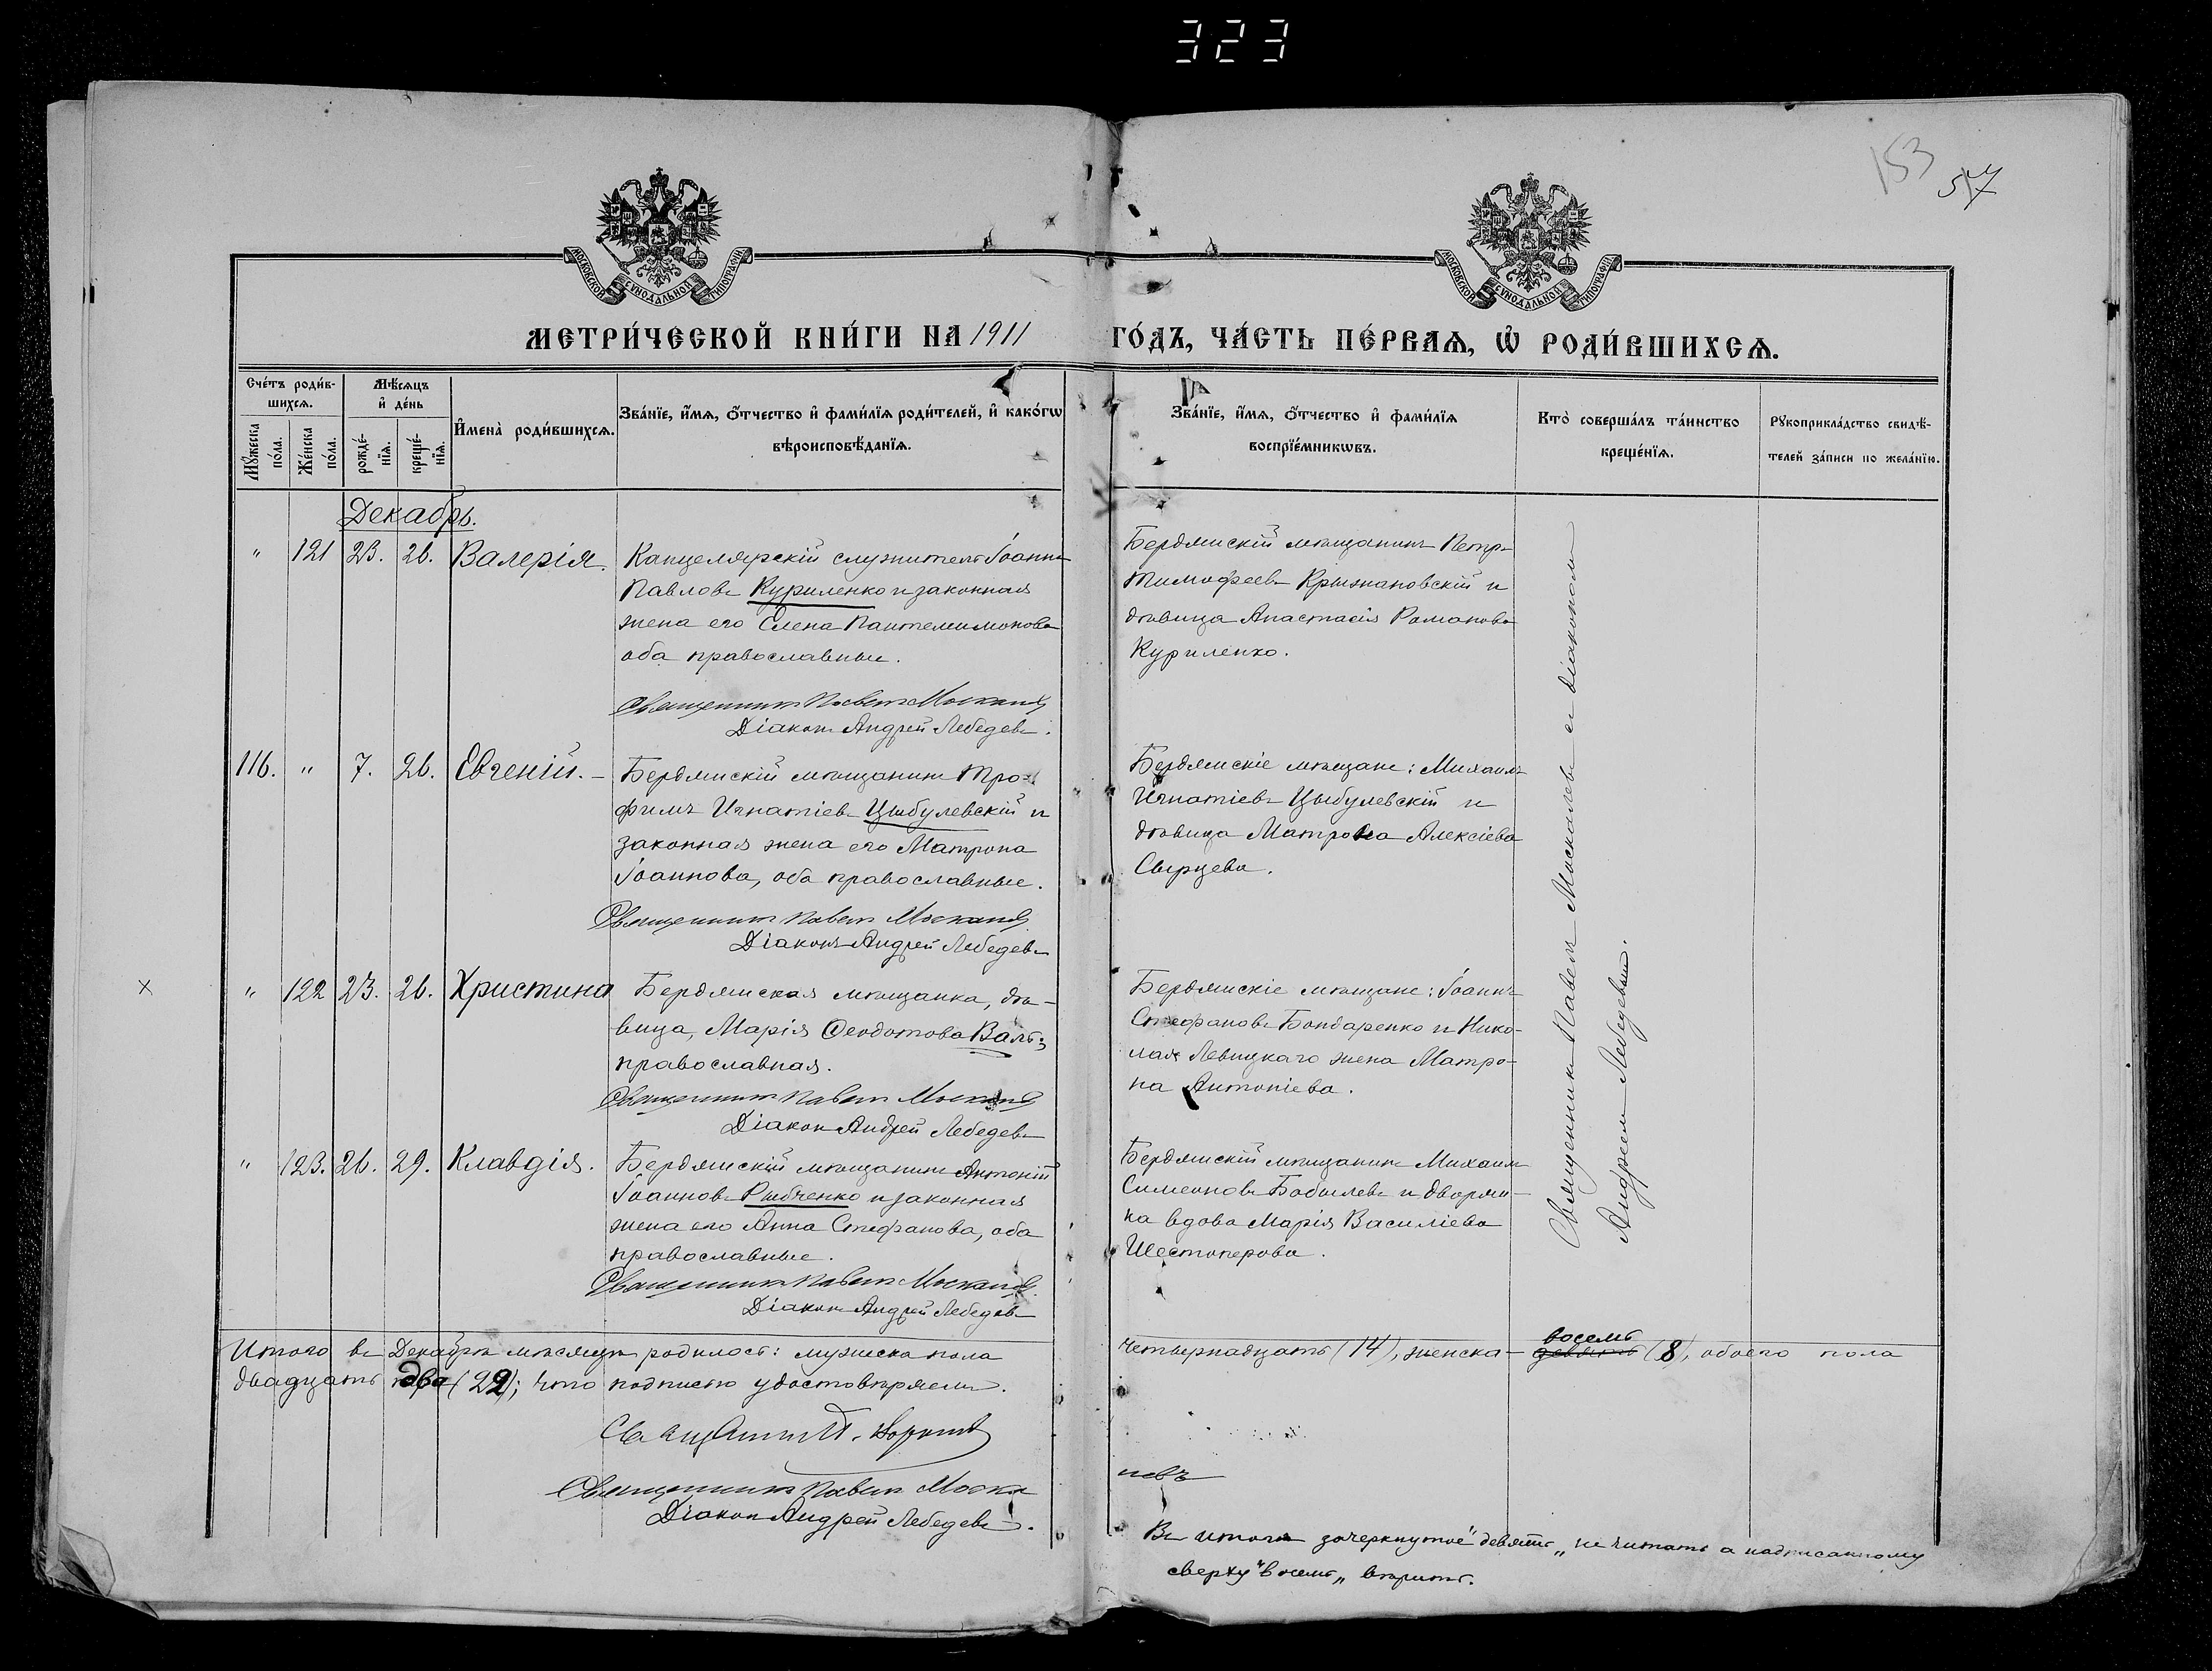 323
153
57
МОСКОВСКОЙ СѴНОДАЛЬНОЙ ТИПОГРАФІИ
МОСКОВСКОЙ СѴНОДАЛЬНОЙ ТИПОГРАФІИ
МЕТРИ́ЧЕСКОЙ КНИ́ГИ НА 1911 ГО́ДЪ, ЧА́СТЬ ПЕ́РВАѦ, Ѽ РОДИ́ВШИХСѦ.
Сче́тъ роди́в-
шихсѧ.
Мꙋ́жеска по́ла.
Же́нска по́ла.
Мѣ́сѧцъ
и҆ де́нь
рожде́-
нїѧ.
креще́-
нїѧ.
И҆мена̀ роди́вшихсѧ.
Зва́нїе, и҆́мѧ, ѻ҆́тчество и҆ фами́лїѧ роди́телей, и҆ како́гѡ
вѣроисповѣ́данїѧ.
Зва́нїе, и҆́мѧ, ѻ҆́тчество и҆ фами́лїѧ
воспрїе́мникѡвъ.
Кто̀ соверша́лъ та́инство
креще́нїѧ.
Рꙋкоприкла́дство свидѣ́-
телей за́писи по жела́нїю.
Декабрь.
" 121 23. 26. Валерія.
Канцелярскій служитель Іоаннъ
Павловъ Куриленко и законная
жена его Елена Пантелимонова
оба православные.
Священникъ Павелъ Москалевъ
Діаконъ Андрей Лебедевъ.
Бердянскій мѣщанинъ Петръ
Тимофеевъ Крыжановскій и
дѣвица Анастасія Романова
Куриленко.
116. " 7. 26. Евгеній.
Бердянскій мѣщанинъ Тро-
фимъ Игнатіевъ Цыбулевскій и
законная жена его Матрона
Іоаннова, оба православные.
Священникъ Павелъ Москалевъ
Діаконъ Андрей Лебедевъ
Бердянскіе мѣщане: Михаилъ
Игнатіевъ Цыбулевскій и
дѣвица Матрона Алексіева
Сырцева.
× " 122 23. 26. Христина
Бердянская мѣщанка, дѣ-
вица, Марія Ѳеодотова Валь;
православная.
Священникъ Павелъ Москалевъ
Діаконъ Андрей Лебедевъ
Бердянскіе мѣщане: Іоаннъ
Стефановъ Бондаренко и Нико-
лая Левицкаго жена Матро-
на Антоніева.
" 123. 26. 29. Клавдія.
Бердянскій мѣщанинъ Антоній
Іоанновъ Рыбченко и законная
жена его Анна Стефанова, оба
православные.
Священникъ Павелъ Москалевъ
Діаконъ Андрей Лебедевъ
Бердянскій мѣщанинъ Михаилъ
Симеоновъ Бобылевъ и дворян-
ка вдова Марія Василіева
Шестоперова.
Священникъ Павелъ Москалевъ съ діакономъ
Андреемъ Лебедевымъ.
Итого въ Декабрѣ мѣсяцѣ родилось: мужска пола четырнадцать (14), женска — девять восемь (8), обоего пола
двадцать два (22); что подписью удостовѣряемъ.
Священникъ Павелъ Москалевъ
Діаконъ Андрей Лебедевъ.
Въ итогѣ зачеркнутое "девять" не читать а надписанному
сверху "восемь" вѣрить.